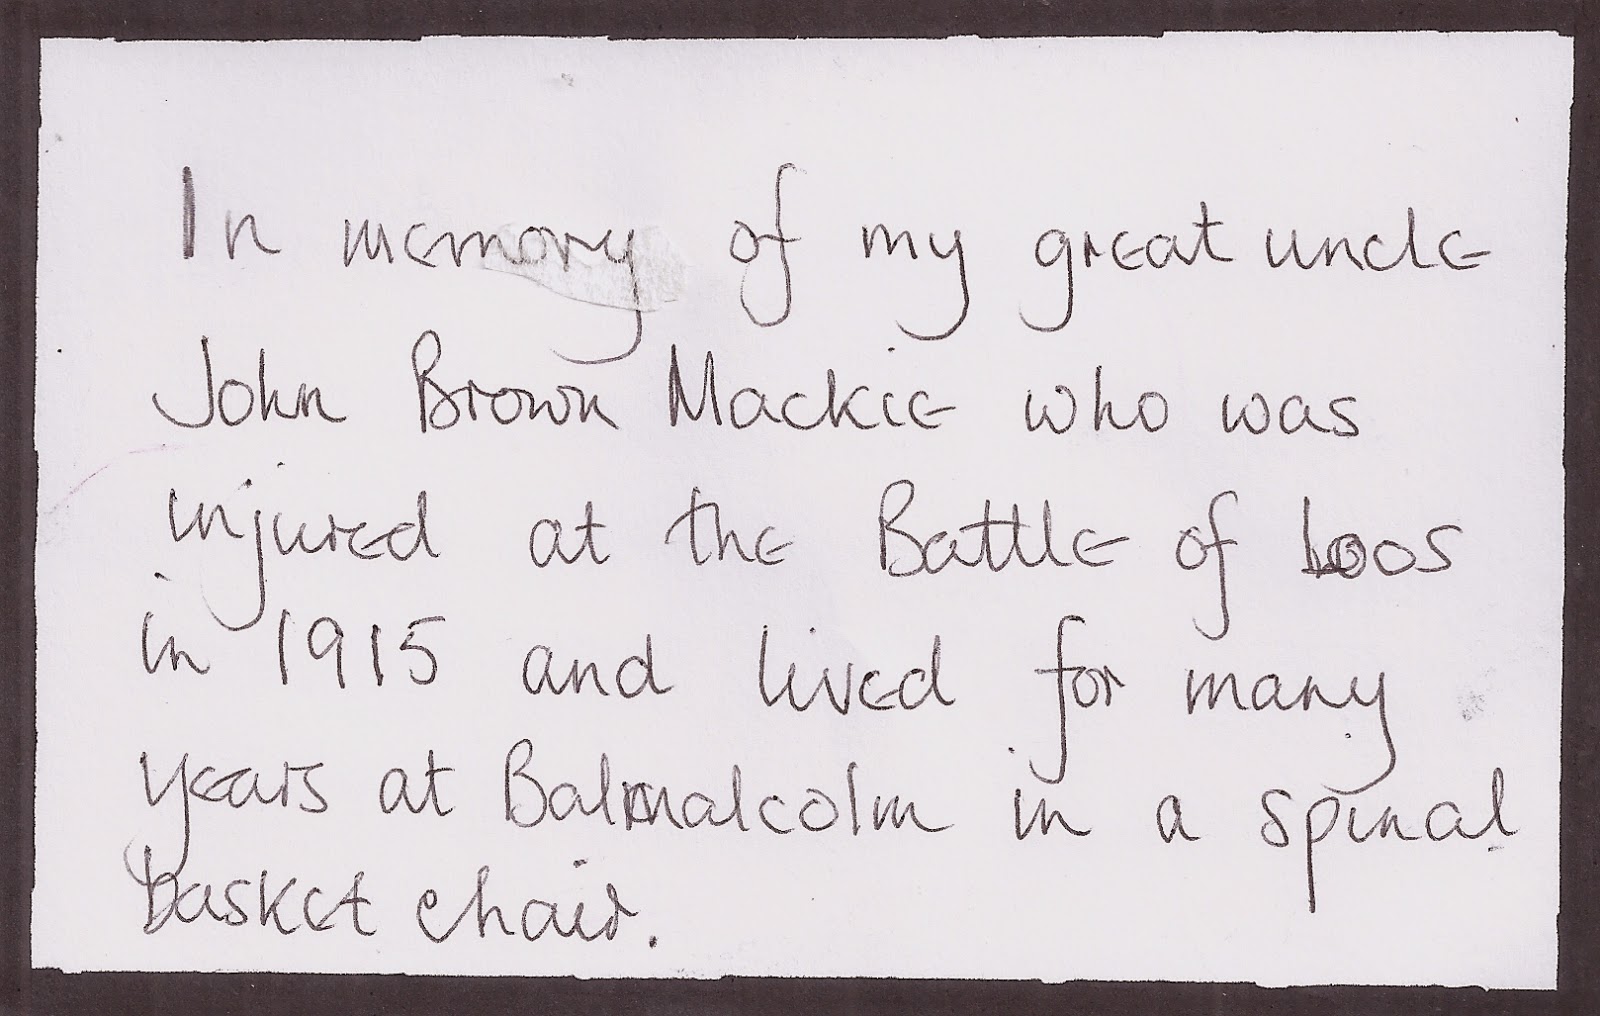 In memory of my great uncle
John Brown Mackie who was
injured at the Battle of Loos
in 1915 and lived for many
years at Balmalcolm in a spinal
basket chair.